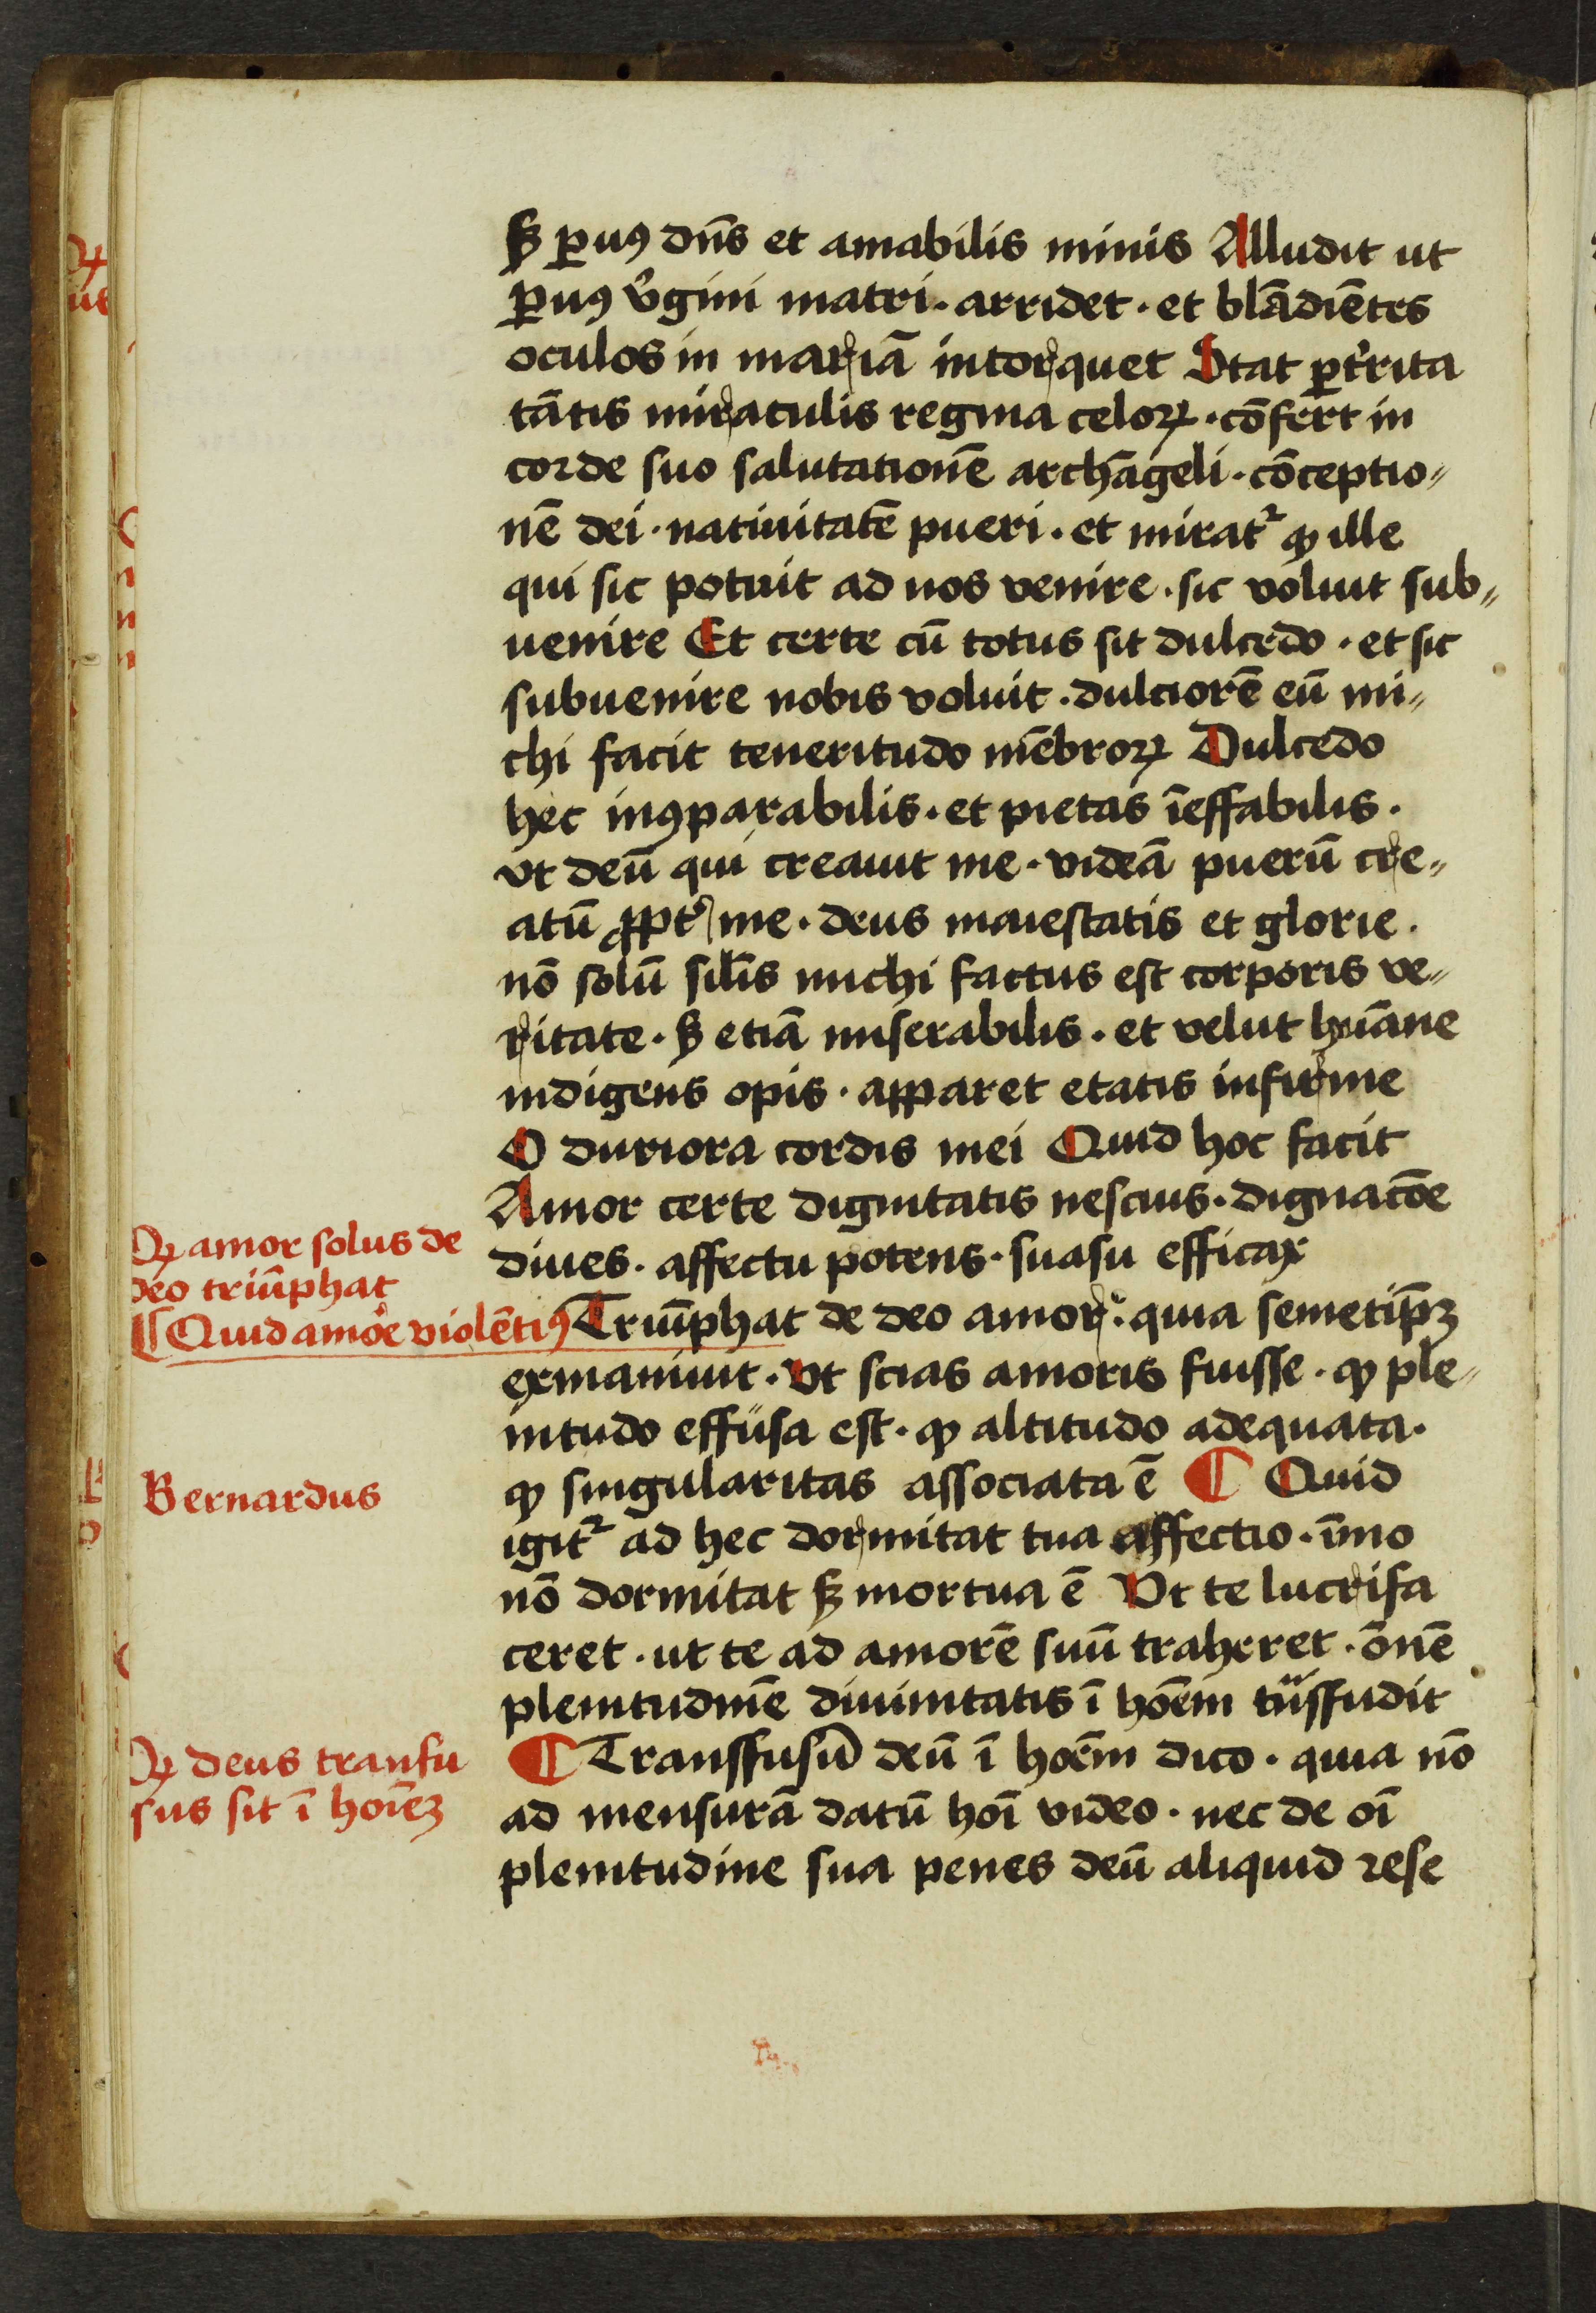 sꝫ ꝑuꝯ dn̄s et amabilis nimis Alludit ut
ꝑuꝯ v̓gini matri · arridet · et blādiētes
oculos in mariā intorquet Stat ꝑt̓rita
tātis miraculis regina celoꝝ · cōfert in
corde suo salutationē archāgeli · cōceptio„
nē dei · natiuitatē pueri · et mirat᷑ ꝙ ille
qui sic potuit ad nos venire · sic voluit sub„
uenire Et certe cū totus sit dulcedo · et sic
subuenire nobis voluit · dulciorē eū mi„
chi facit teneritudo mēbroꝝ Dulcedo
hec inꝯparabilis · et pietas īeffabilis ·
vt deū qui creauit me · videā puerū cre„
atū ꝓpt̓ me · deus maiestatis et glorie ·
nō solū sil̄is michi factus est corporis ve„
ritate · sꝫ etiā miserabilis · et velut hūane
indigens opis · apparet etatis infirme
O duriora cordis mei Quid hoc facit
Amor certe dignitatis nescius · dignacōe
diues · affectu potens · suasu efficax
Triūphat de deo amor · quia semetip̄ꝫ
exinaniuit · Vt scias amoris fuisse · ꝙ ple„
nitudo effusa est · ꝙ altitudo adequata ·
ꝙ singularitas associata ē ¶ Quid
igit᷑ ad hec dormitat tua affectio · īmo
nō dormitat sꝫ mortua ē Vt te lucrifa
ceret · ut te ad amorē suū traheret · ōnē
plenitudinē diuinitatis ī hoēm tᷓnsfudit
¶ Transfusū deū ī hoēm dico · quia nō
ad mensurā datū hoī video · nec de oī
plenitudine sua penes deū aliquid rese
Ꝙ amor solus de
deo triūphat
¶ Quid amoͤre violētiꝯ
Bernardus
Ꝙ deus transfu
sus sit ī hoīeꝫ